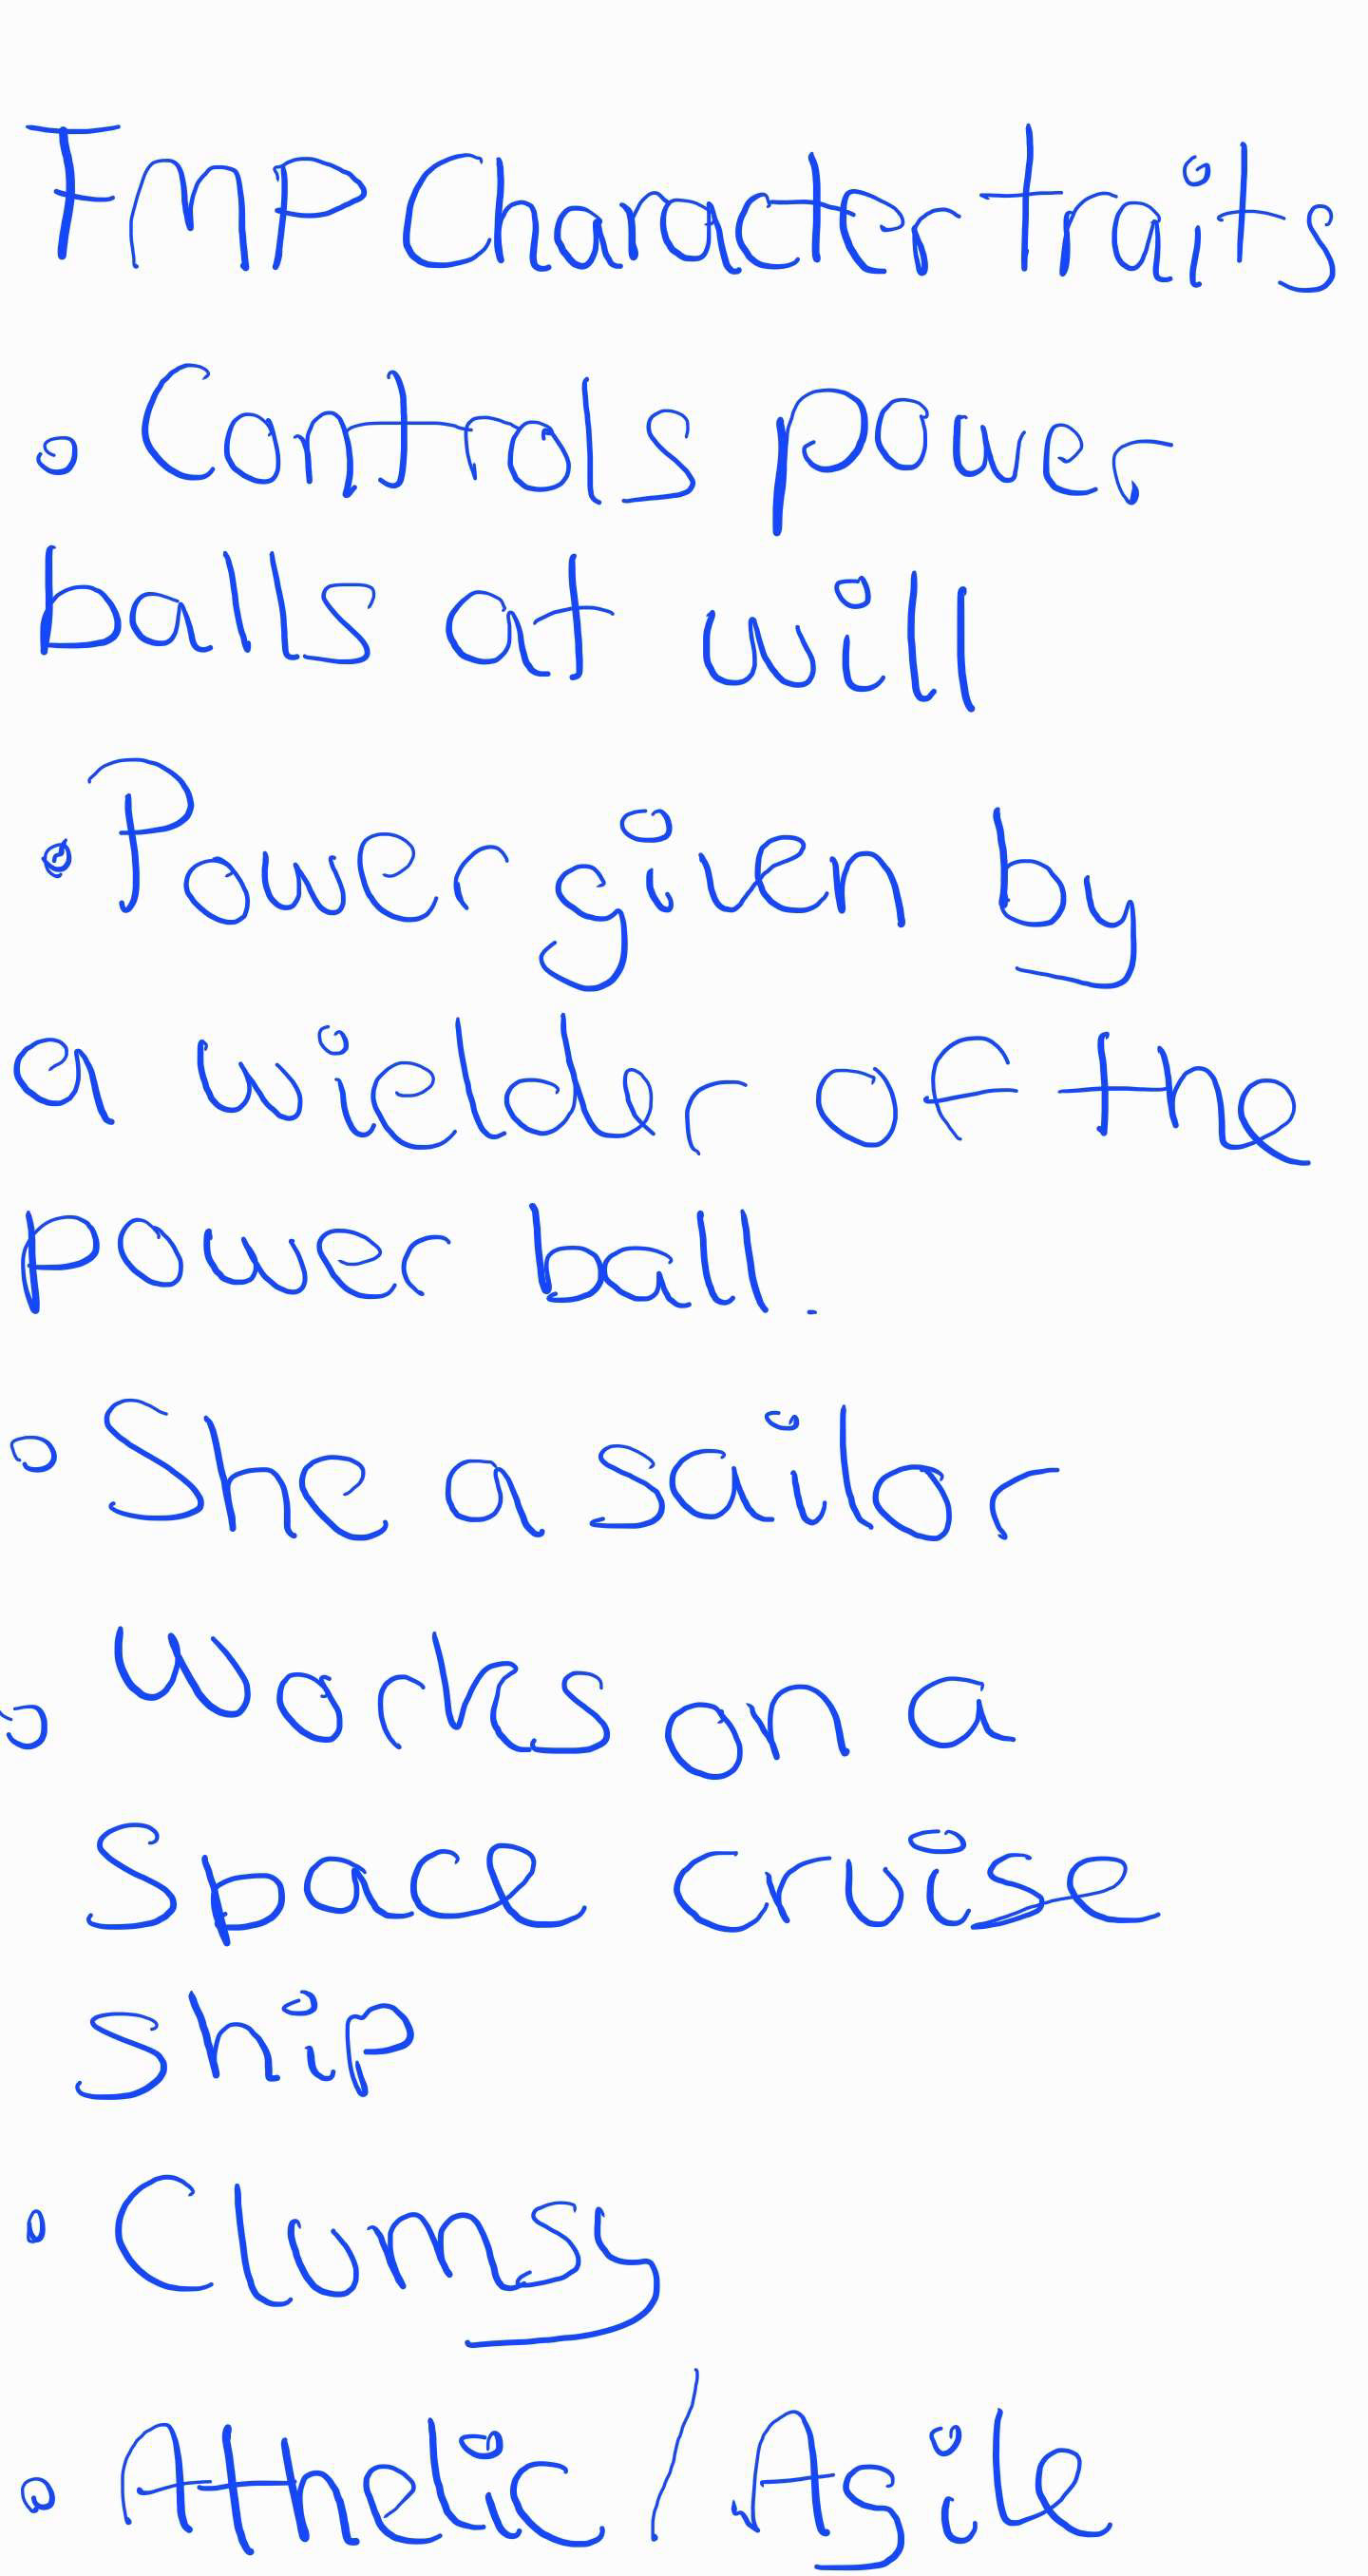 FMP Character traits
◦ Controls power
balls at will
◦ Power given by
a wielder of the
power ball.
◦ She a sailor
◦ Works on a
Space cruise
ship
◦ Clumsy
◦ Athelic / Agile